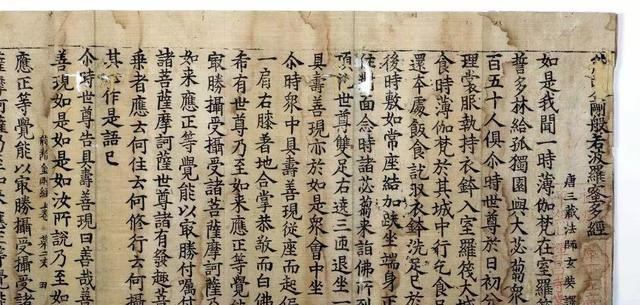 剛般若波羅蜜多經
唐三藏法師玄奘
如是我聞一時薄伽梵在室羅
誓多林給孤獨園與大苾芻衆
百五十人俱尒時世尊於日初
理裳服執持衣鉢入室羅筏大城
食時薄伽梵於其城中行乞食
還本處飯食訖収衣鉢洗足已於
後時敷如常座結加趺坐端身正
住面念時諸苾芻來詣佛所
頂世尊雙足右遶三匝退坐一
具壽善現亦於如是衆會中坐
尒時衆中具壽善現從座而起偏
一肩右膝著地合掌恭敬而白佛
希有世尊乃至如來應正等覺
寂勝攝受攝受諸菩薩摩訶薩乃
如來應正等覺能以寂勝付囑付
諸菩薩摩訶薩世尊諸有發趣菩
乘者應云何住云何修行云何攝
其作是語已
尒時世尊告具壽善現曰善哉善
善現如是如是如汝所說乃至如
應正等覺能以寂勝攝受攝受諸
薩摩訶薩乃至如來應正等覺